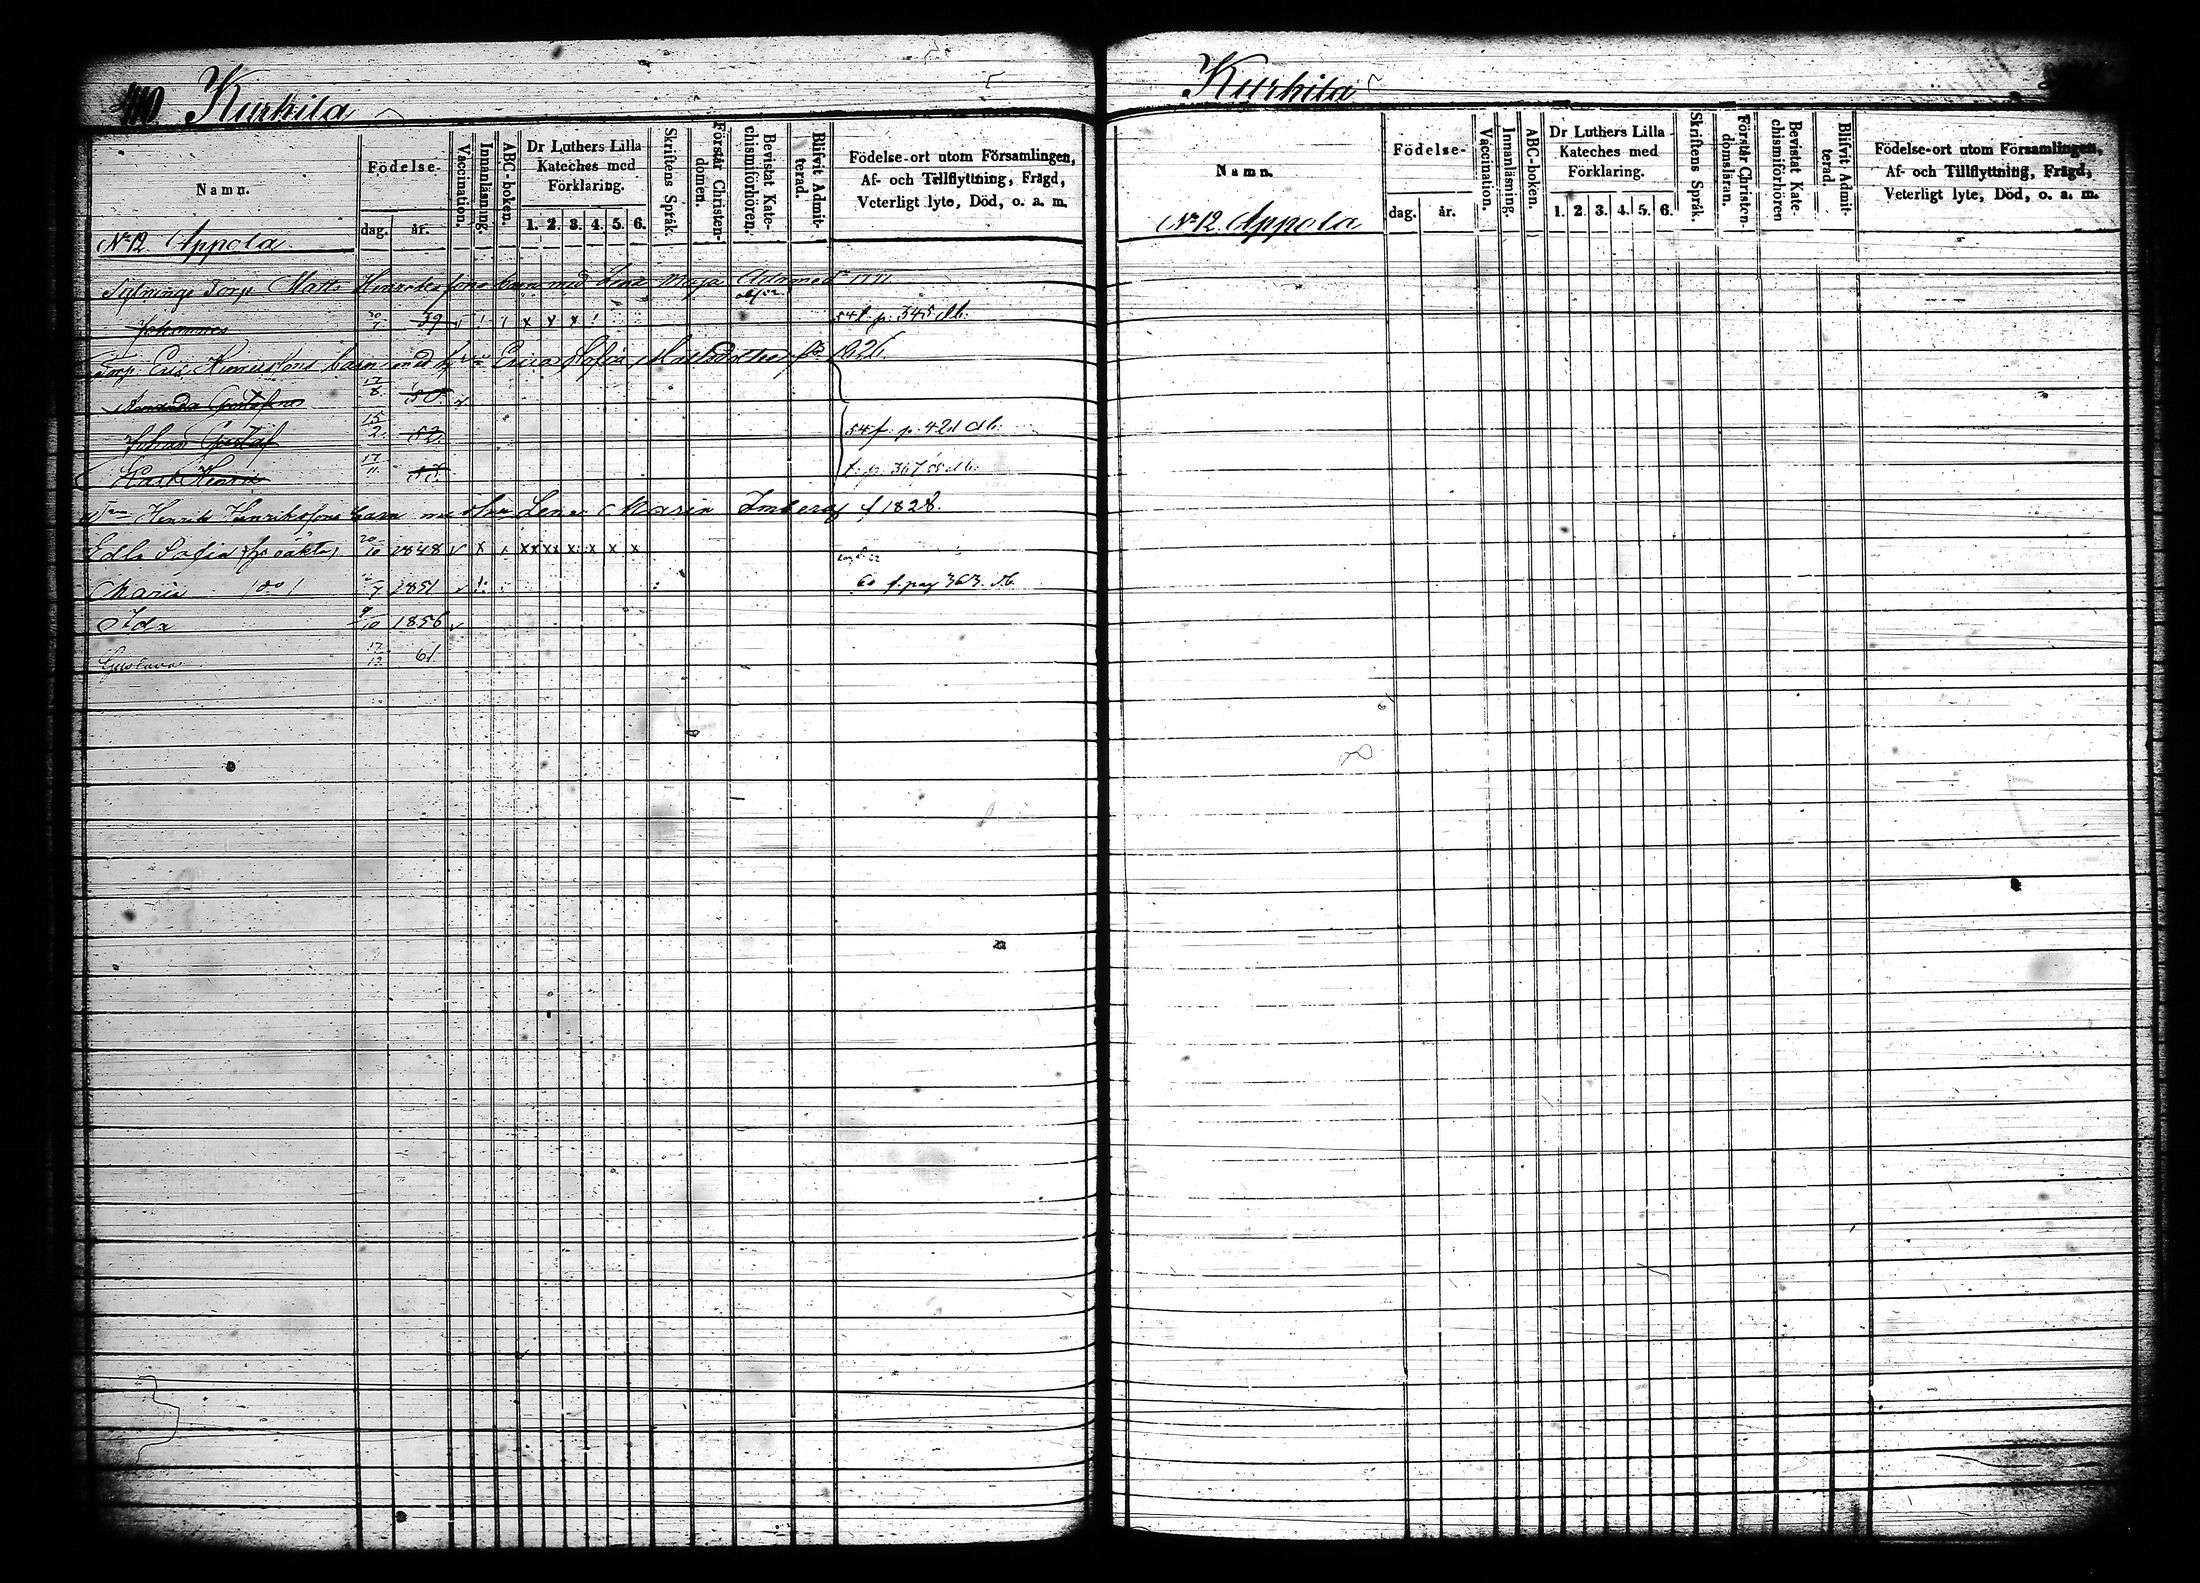 Kurhila
Namn.
Födelse-
dag. år.
Vaccination.
Innanläsning.
ABC-boken.
Dr Luthers Lilla
Kateches med
Förklaring.
1. 2. 3. 4. 5. 6.
Skriftens Språk.
Förstår Christen-
domen.
Bevistat Kate-
chismiförhören.
Blifvit Admit-
terad.
Födelse-ort utom Församlingen,
Af- och Tillflyttning, Frägd,
Veterligt lyte, Död, o. a. m.
No 12 Appola
Torp. Matts Henrikssons barn med Lena Maja
Johannes 39 x x x 54 f. p. 345 db.
Torp. Eric Henrikssons barn med h Erica Sofia Mattsdotter 1826.
Amanda Gustafva 17/8 50
Johan Gustaf 15/2 52 54 f. p. 421 db.
Henric 17/11
Henrik Henrikssons barn med Lena Maria f 1828.
Edla Sofia (oäkta) 20/10 1848
Maria (do) 7 1851 60 f. pag 363. db.
Ida 9/10 1856
Gustava 17/12 61
Kurhila
Namn.
Födelse-
dag. år.
Vaccination.
Innanläsning.
ABC-boken.
Dr Luthers Lilla
Kateches med
Förklaring.
1. 2. 3. 4. 5. 6.
Skriftens Språk.
Förstår Christen-
domsläran.
Bevistat Kate-
chismiförhören
Blifvit Admit-
terad.
Födelse-ort utom Församlingen,
Af- och Tillflyttning, Frägd,
Veterligt lyte, Död, o. a. m.
No 12. Appola